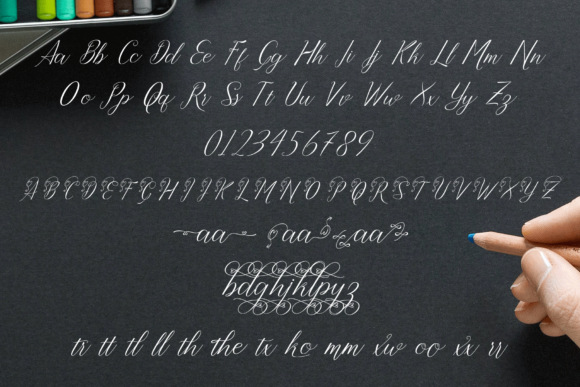 Aa Bb Cc Dd Ee Ff Gg Hh Ii Jj Kk Ll Mm Nn
Oo Pp Qq Rr Ss Tt Uu Vv Ww Xx Yy Zz
0123456789
A B C D E F G H I J K L M N O P Q R S T U V W X Y Z
aa aa aa
bdghjklpyz
tr tt tl ll th the tx ko mm xw oo xx rr